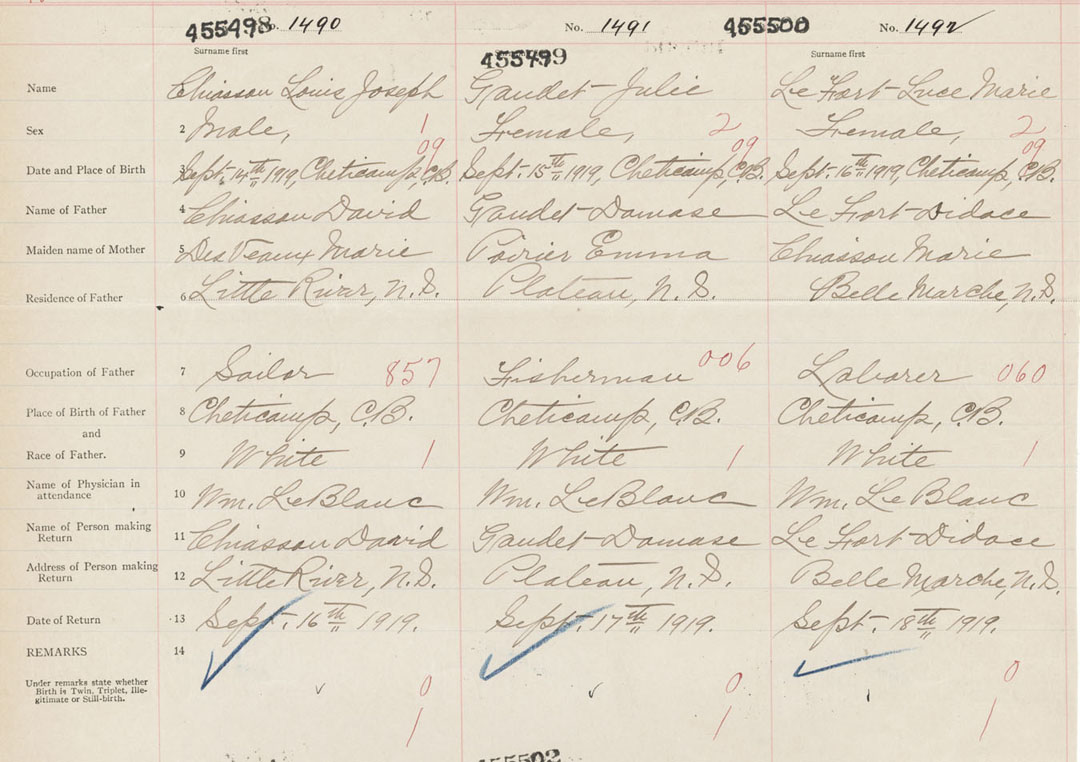 455498 No. 1490 No. 1491 455500 No. 1492
Surname first 455499 Surname first
Name Chiasson Louis Joseph Gaudet Julie Le Fort Luce Marie
Sex 2 Male, 1 Female, 2 Female, 2
09 09 09
Date and Place of Birth 3 Sept. 14th 1919, Cheticamp, C.B. Sept. 15th 1919, Cheticamp, C.B. Sept. 16th 1919, Cheticamp, C.B.
Name of Father 4 Chiasson David Gaudet Damase Le Fort Didace
Maiden name of Mother 5 DesVeaux Marie Poirier Emma Chiasson Marie
Residence of Father 6 Little River, N.S. Plateau, N.S. Belle Marche, N.S.
Occupation of Father 7 Sailor 857 Fisherman 006 Laborer 060
Place of Birth of Father 8 Cheticamp, C.B. Cheticamp, C.B. Cheticamp, C.B.
and
Race of Father. 9 White 1 White 1 White 1
Name of Physician in
attendance 10 Wm. LeBlanc Wm. LeBlanc Wm. LeBlanc
Name of Person making
Return 11 Chiasson David Gaudet Damase Le Fort Didace
Address of Person making
Return 12 Little River, N.S. Plateau, N.S. Belle Marche, N.S.
Date of Return 13 Sept. 16th 1919. Sept. 17th 1919. Sept. 18th 1919.
REMARKS 14
Under remarks state whether
Birth is Twin, Triplet, Ille-
gitimate or Still-birth.
0 0 0
1 1 1
455502